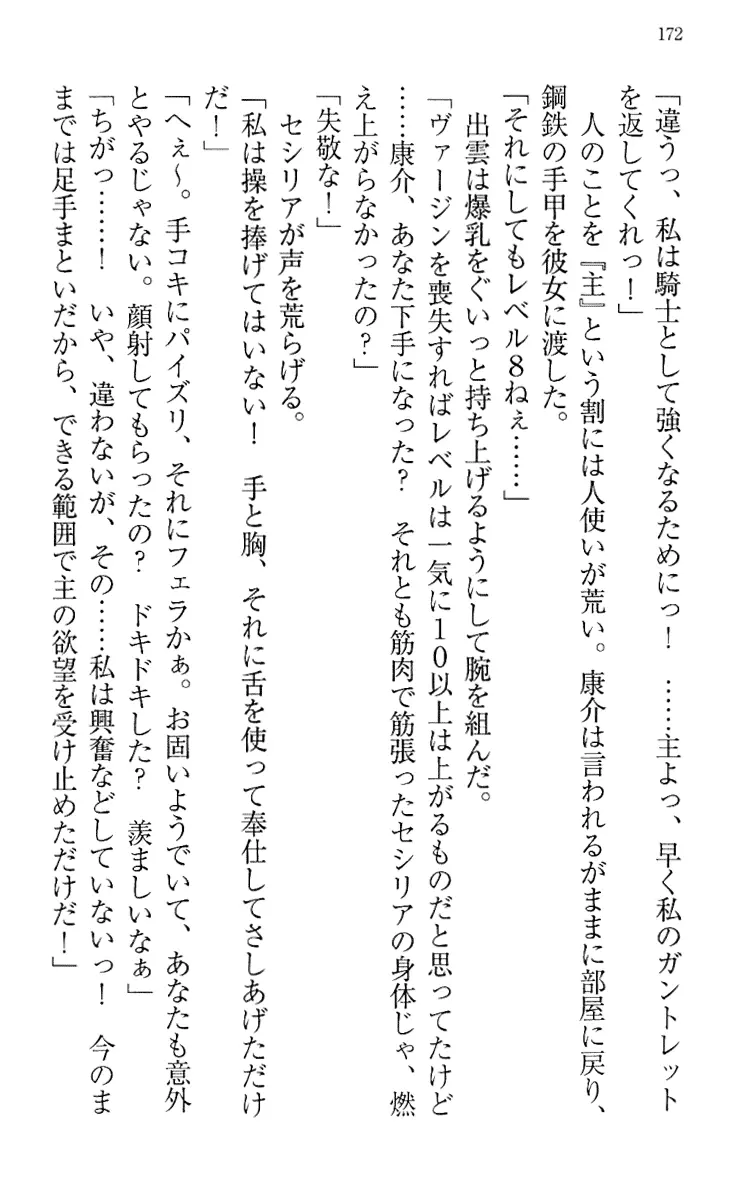 172
「違うっ、私は騎士として強くなるためにっ！　……主よっ、早く私のガントレット
を返してくれっ！」
　人のことを『主』という割には人使いが荒い。康介は言われるがままに部屋に戻り、
鋼鉄の手甲を彼女に渡した。
「それにしてもレベル8ねぇ……」
　出雲は爆乳をぐいっと持ち上げるようにして腕を組んだ。
「ヴァージンを喪失すればレベルは一気に10以上は上がるものだと思ってたけど
……康介、あなた下手になった？　それとも筋肉で筋張ったセシリアの身体じゃ、燃
え上がらなかったの？」
「失敬な！」
　セシリアが声を荒らげる。
「私は操を捧げてはいない！　手と胸、それに舌を使って奉仕してさしあげただけ
だ！」
「へぇ～。手コキにパイズリ、それにフェラかぁ。お固いようでいて、あなたも意外
とやるじゃない。顔射してもらったの？　ドキドキした？　羨ましいなぁ」
「ちがっ……！　いや、違わないが、その……私は興奮などしていないっ！　今のま
までは足手まといだから、できる範囲で主の欲望を受け止めただけだ！」